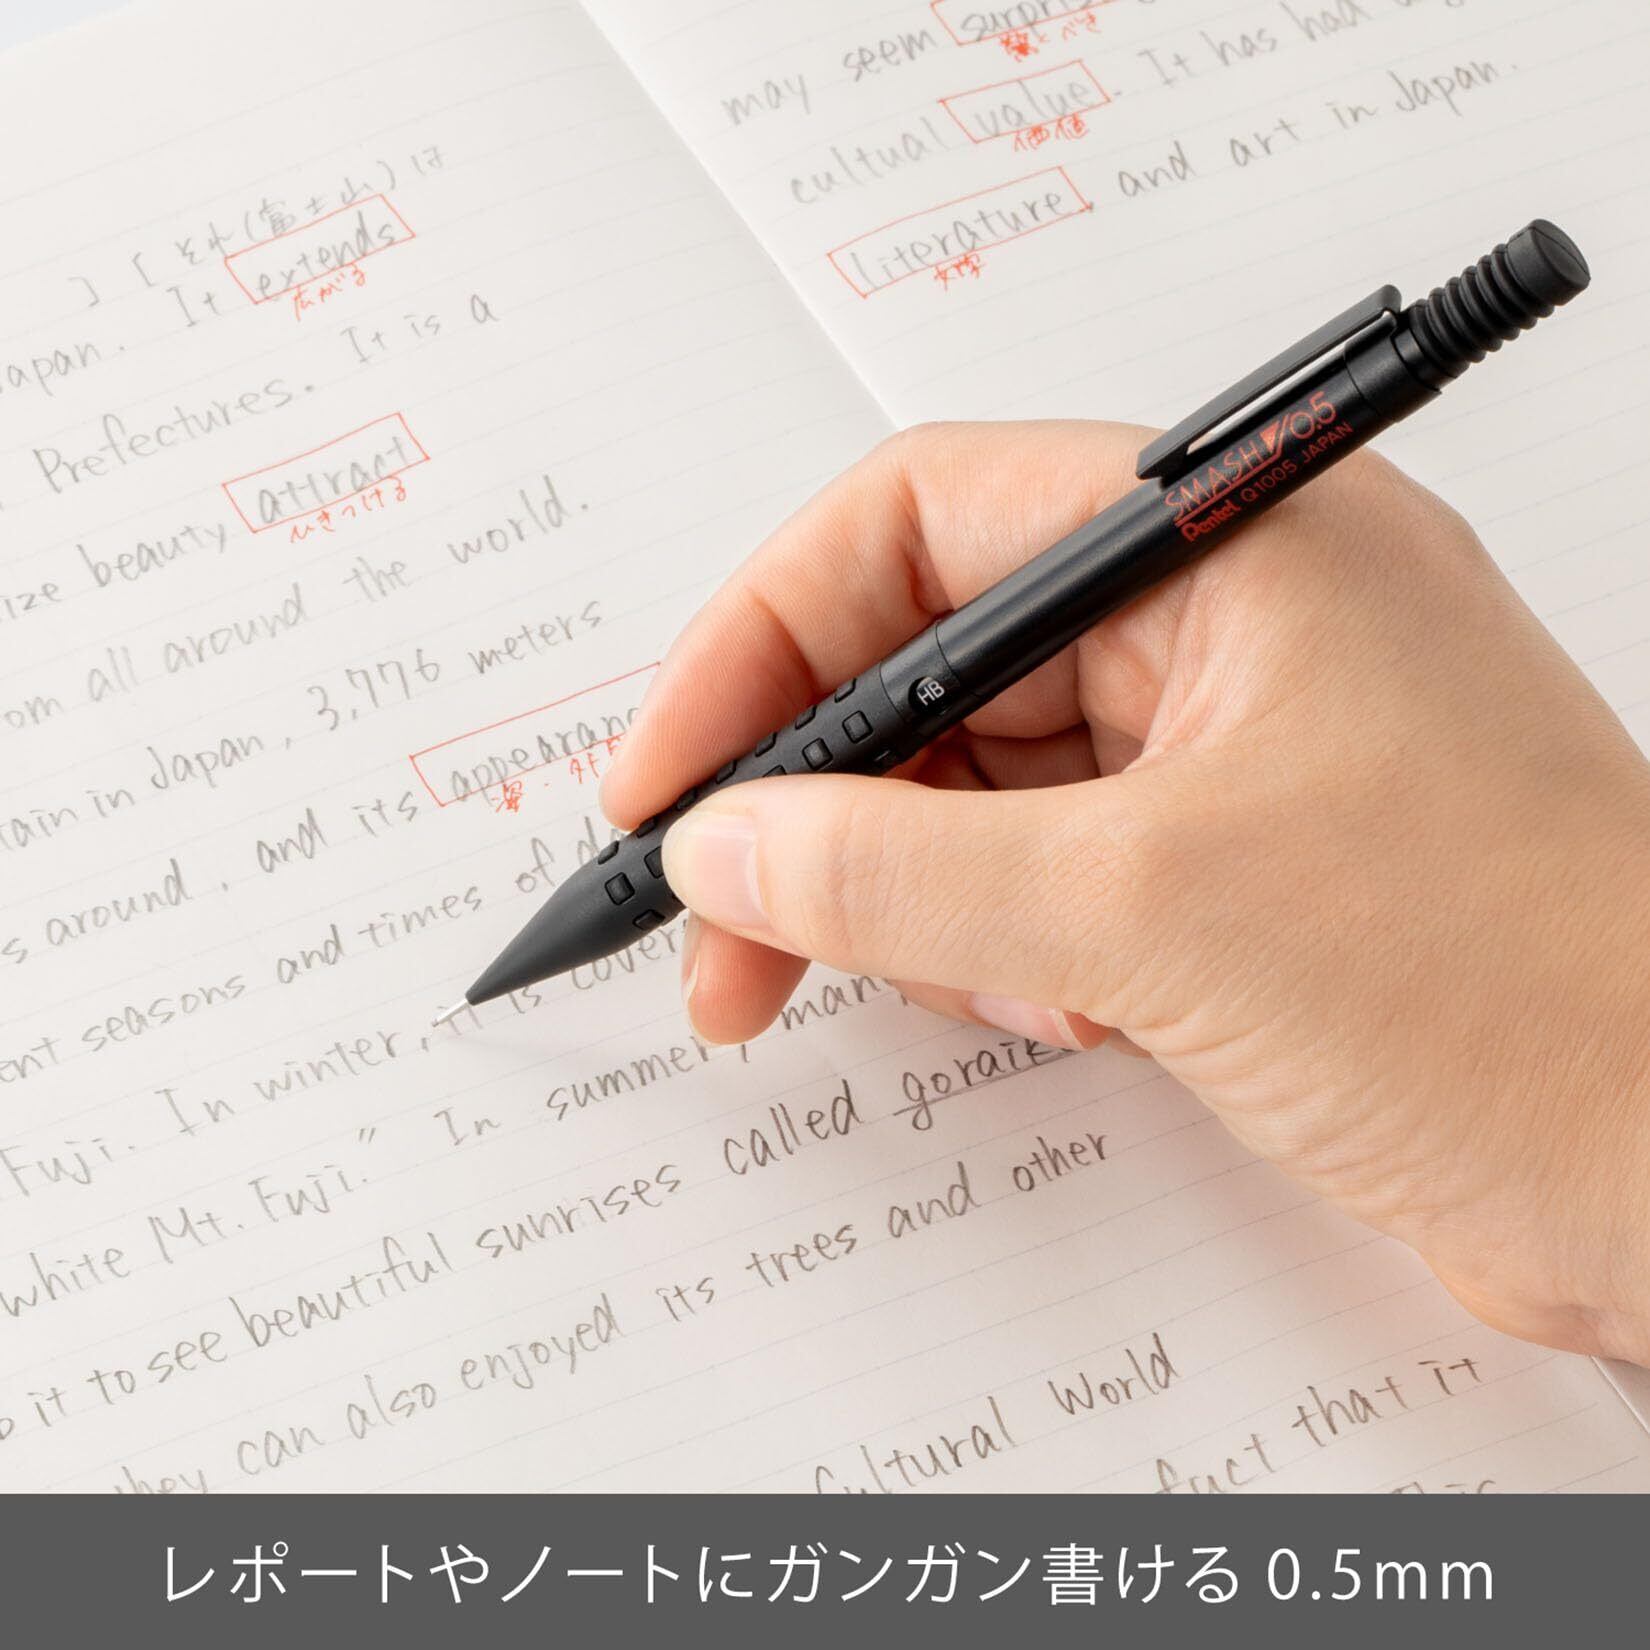 ] [ それ(富士山)は
Japan. It extends
広がる
Prefectures. It is a
ize beauty attract
ひきつける
om all around the world.
tain in Japan, 3,776 meters
s around, and its
姿・外
ent seasons and times of
Fuji. In winter, it is cover
white Mt. Fuji." In summer, many
it to see beautiful sunrises called goraik
they can also enjoyed its trees and other
may seem
cultual value. It has had
価値
literature, and art in Japan.
文学
cultural World
fact that it
This
SMASH 0.5
Pentel Q1005 JAPAN
HB
レポートやノートにガンガン書ける 0.5mm